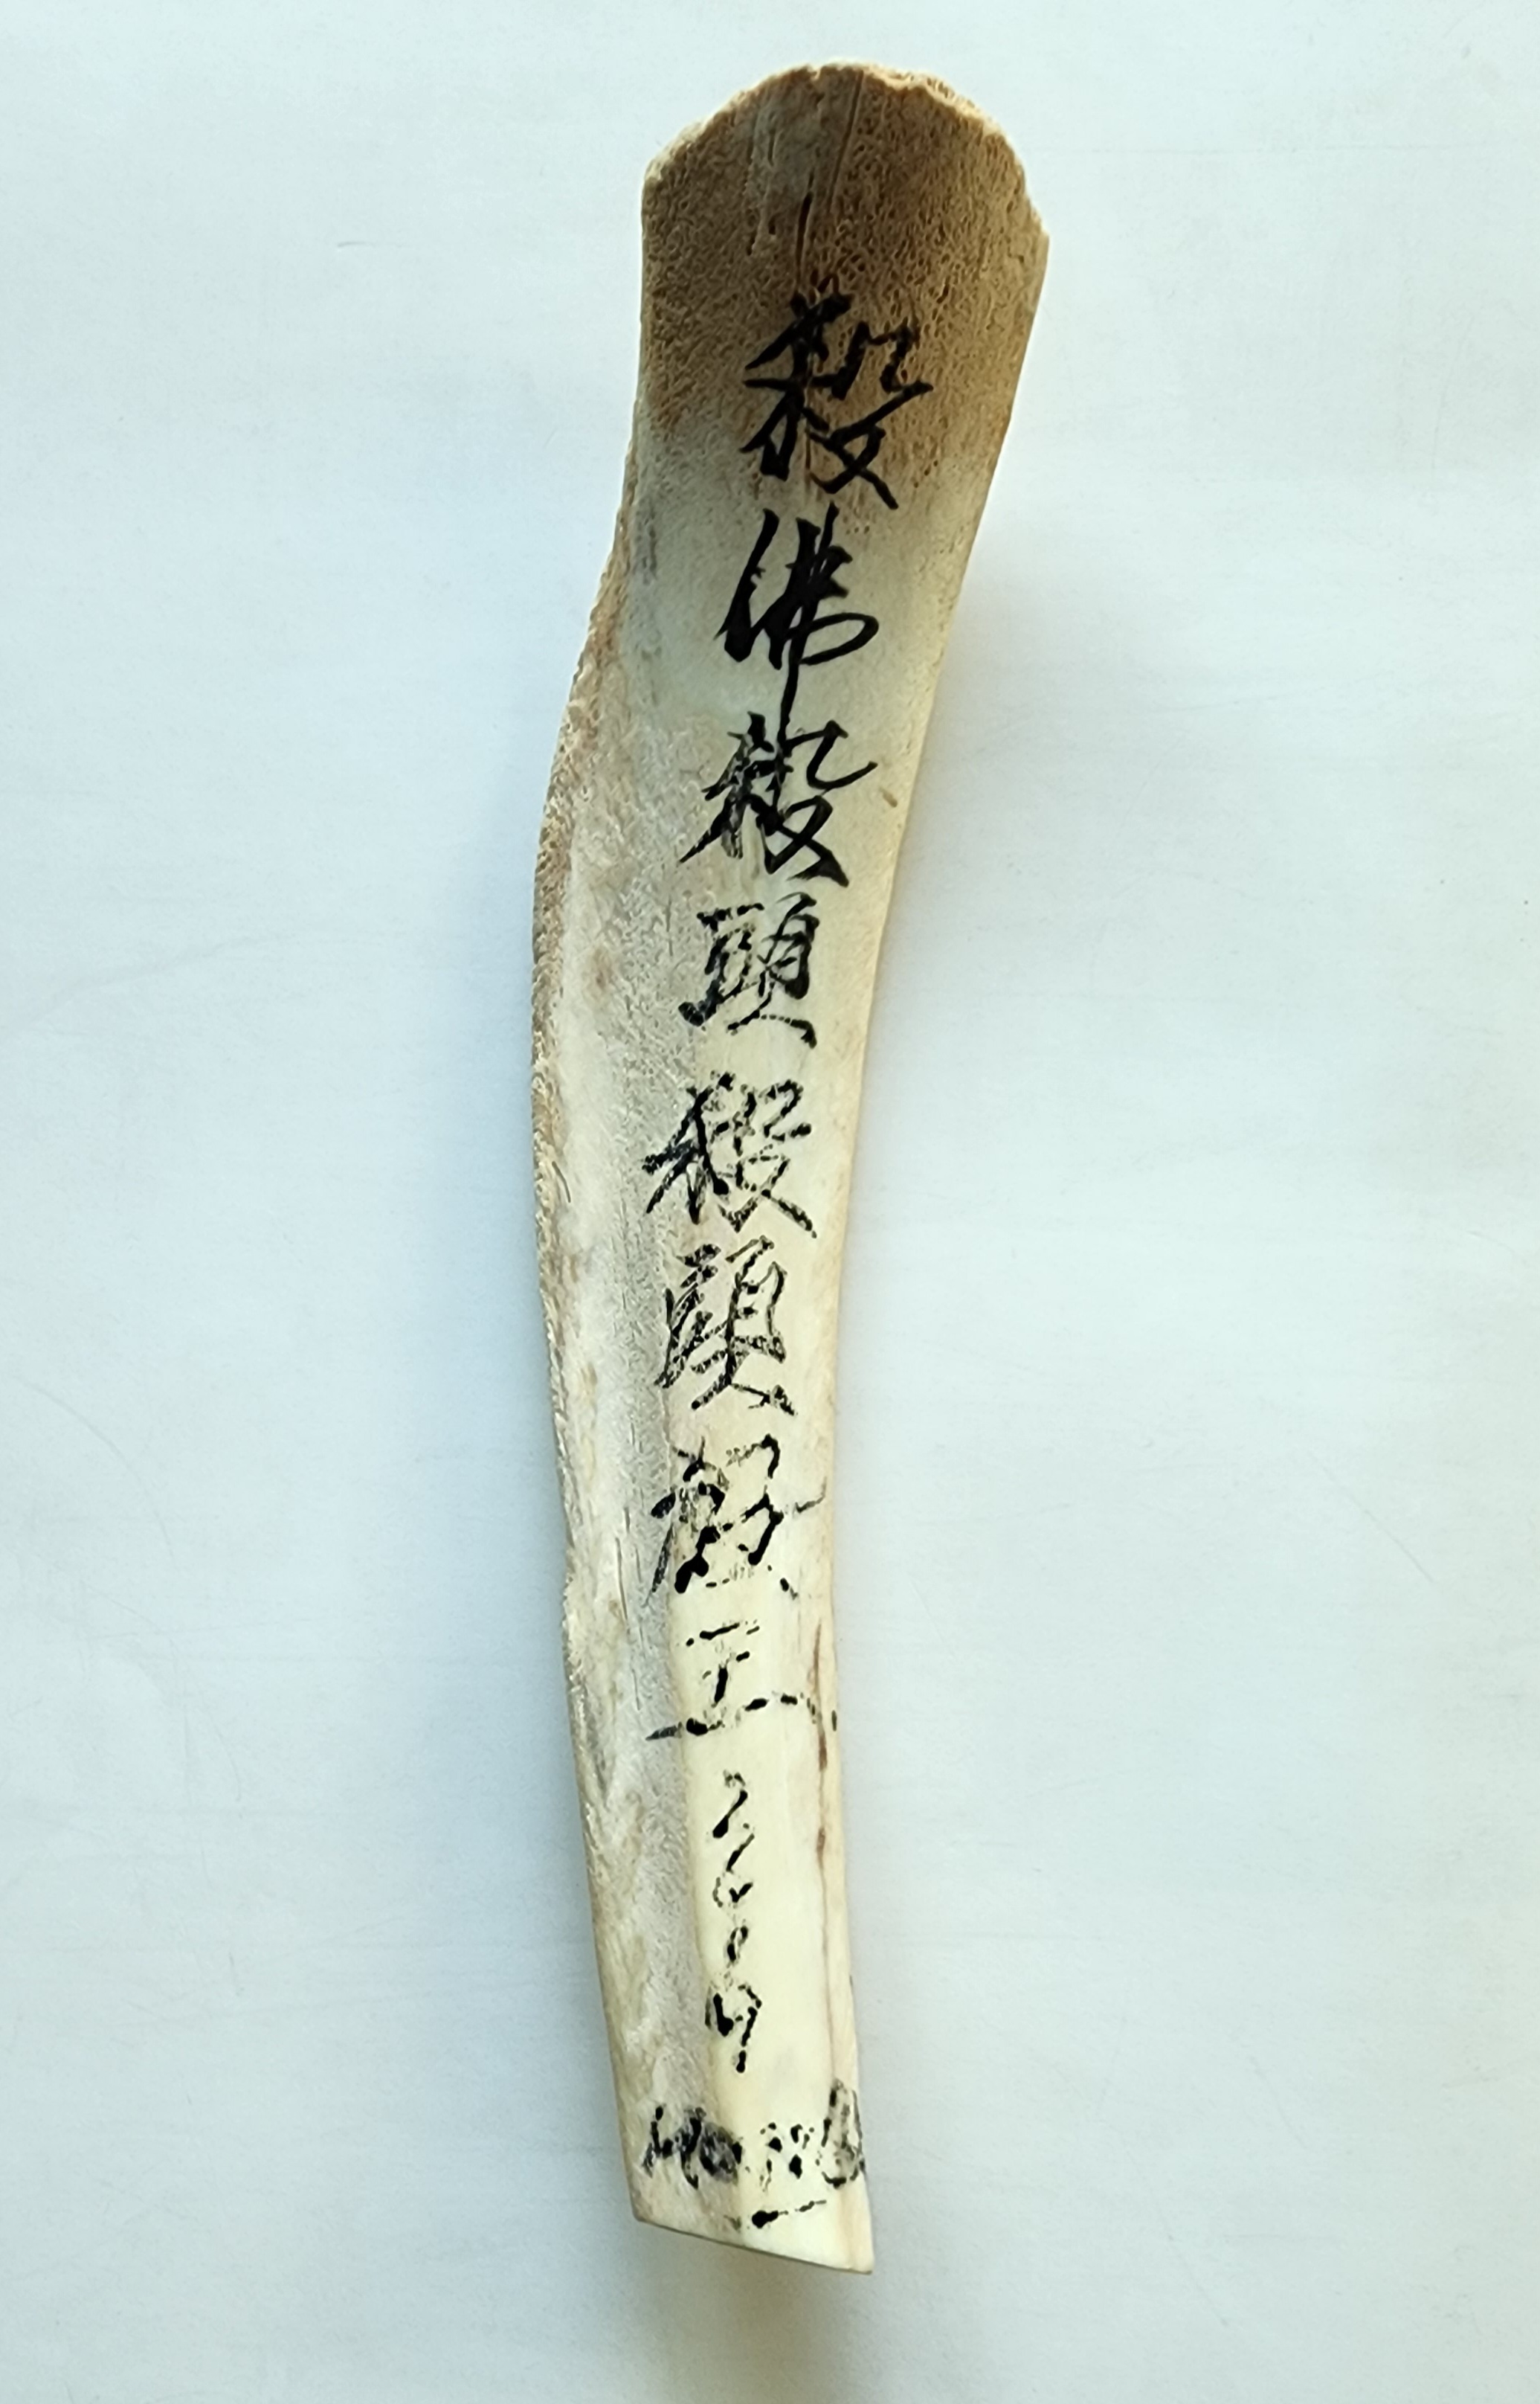 殺佛殺頭殺願殺王 2004